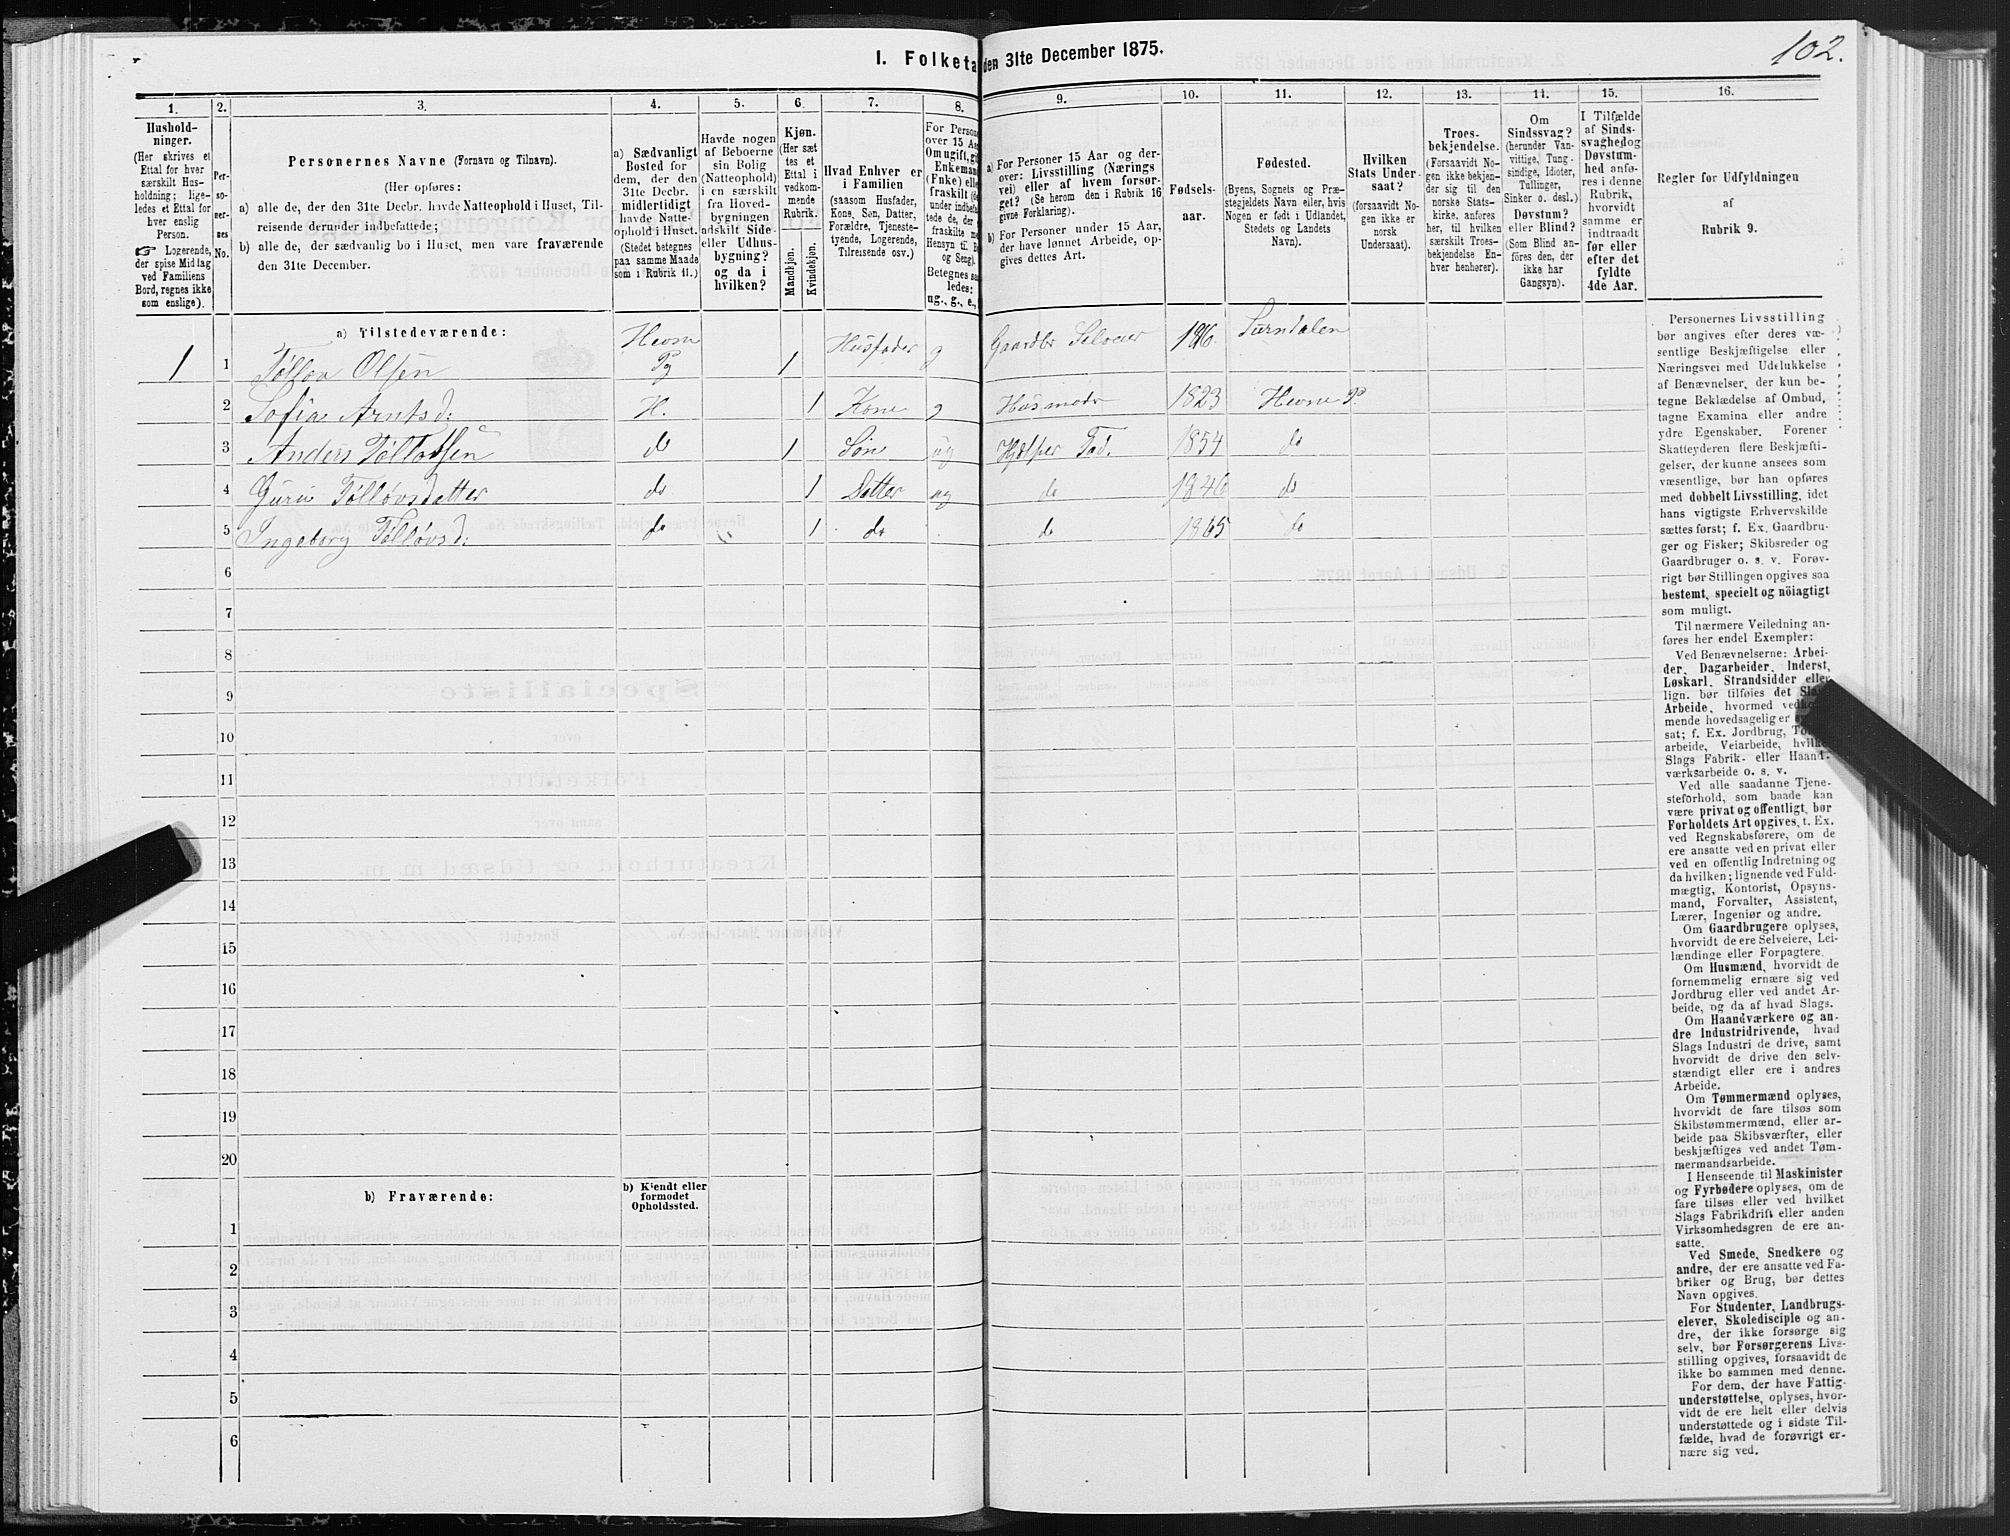 102.
I. Folketa den 31te December 1875.
1. 2. 3. 4. 5. 6. 7. 8. 9. 10. 11. 12. 13. 14. 15. 16.
Hushold-
ninger.
(Her skrives et
Ettal for hver
særskilt Hus-
holdning; lige-
ledes et Ettal for
hver enslig
Person.
☞ Logerende,
der spise Middag
ved Familiens
Bord, regnes ikke
som enslige).
Per-
so-
ner-
nes
No.
Personernes Navne (Fornavn og Tilnavn).
(Her opføres:
a) alle de, der den 31te Decbr. havde Natteophold i Huset, Til-
reisende derunder indbefattede;
b) alle de, der sædvanlig bo i Huset, men vare fraværende
den 31te December.
a) Sædvanligt
Bosted for
dem, der den
31te Decbr.
midlertidigt
havde Natte-
ophold i Huset.
(Stedet betegnes
paa samme Maade
som i Rubrik 11.)
Havde nogen
af Beboerne
sin Bolig
(Natteophold)
i en særskilt
fra Hoved-
bygningen
adskilt Side-
eller Udhus-
bygning?
og da i
hvilken?
Kjøn.
(Her sæt
tes et
Ettal i
vedkom-
mende
Rubrik.
Mandkjøn.
Kvindekjøn.
Hvad Enhver er
i Familien
(saasom Husfader,
Kone, Søn, Datter,
Forældre, Tjeneste-
tyende, Logerende,
Tilreisende osv.)
For Person
over 15 Aa
Om ugift, gi
Enkemand
(Enke) elle
fraskilt
under indbefa
tede de, der
fraskilte m
Hensyn til B
og Seng).
Betegnes saa
ledes:
ug., g., e.,
a) For Personer 15 Aar og der-
over: Livsstilling (Nærings
vei) eller af hvem forsør-
get? (Se herom den i Rubrik 16
givne Forklaring).
b) For Personer under 15 Aar,
der have lønnet Arbeide, op-
gives dettes Art.
Fødsels-
aar.
Fødested.
(Byens, Sognets og Præ-
stegjeldets Navn eller, hvis
Nogen er født i Udlandet,
Stedets og Landets
Navn).
Hvilken
Stats Under-
saat?
(forsaavidt No-
gen ikke er
norsk
Undersaat).
Troes-
bekjendelse.
(Forsaavidt No-
gen ikke bekjen-
der sig til den
norske Stats-
kirke, anføres
her, til hvilken
særskilt Troes-
bekjendelse En-
hver henhører).
Om
Sindssvag?
(herunder Van-
vittige, Tung-
sindige, Idioter,
Tullinger,
Sinker o. desl.)
Døvstum?
eller Blind?
(Som Blind an-
føres den, der
ikke har
Gangsyn).
I Tilfælde
af Sinds-
svaghed og
Døvstum-
hed anfø-
res i denne
Rubrik,
hvorvidt
samme er
indtraadt
før eller
efter det
fyldte
4de Aar.
Regler for Udfyldningen
af
Rubrik 9.
a) Tilstedeværende:
1 1 Tølløv Olsen Hevne Pg 1 Husfader g Gaardbr Selveier Surndalen
2 Sofia Arntsd: H. 1 Kone g Husmoder 1823 Hevne P.
3 Anders Tølløvsen do 1 Søn ug Hjelper Fad. 1854 do
4 Guru Tølløvsdatter do 1 Datter ug do 1846 do
5 Ingeborg Tølløvsd: do 1 do do 1865 do
6
7
8
9
10
11
12
13
14
15
16
17
18
19
20
b) Fraværende:
b) Kjendt eller
formodet
Opholdssted.
1
2
3
4
5
6
Personernes Livsstilling
bør angives efter deres væ-
sentlige Beskjæftigelse eller
Næringsvei med Udelukkelse
af Benævnelser, der kun be-
tegne Beklædelse af Ombud,
tagne Examina eller andre
ydre Egenskaber. Forener
Skatteyderen flere Beskjæfti-
gelser, der kunne ansees som
væsentlige, bør han opføres
med dobbelt Livsstilling, idet
hans vigtigste Erhvervskilde
sættes først; f. Ex. Gaardbru-
ger og Fisker; Skibsreder og
Gaardbruger o. s. v. Forøv-
rigt bør Stillingen opgives saa
bestemt, specielt og nöiagtigt
som muligt.
Til nærmere Veiledning an-
føres her endel Exempler:
Ved Benævnelserne: Arbei-
der, Dagarbeider, Inderst,
Løskarl, Strandsidder eller
lign. bør tilføies det Slags
Arbeide, hvormed vedkom-
mende hovedsagelig er
sat; f. Ex. Jordbrug,
arbeide, Veiarbeide, hvilke
Slags Fabrik- eller Haand-
værksarbeide o. s. v.
Ved alle saadanne Tjene-
steforhold, som baade kan
være privat og offentligt, bør
Forholdets Art opgives, t. Ex.
ved Regnskabsførere, om de
ere ansatte ved en privat eller
ved en offentlig Indretning og
da hvilken; lignende ved Fuld-
mægtig, Kontorist, Opsyns-
mand, Forvalter, Assistent,
Lærer, Ingeniør og andre.
Om Gaardbrugere oplyses,
hvorvidt de ere Selveiere, Lei-
lændinge eller Forpagtere.
Om Husmænd, hvorvidt de
fornemmelig ernære sig ved
Jordbrug eller ved andet Ar-
beide, og da af hvad Slags.
Om Haandværkere og an-
dre Industridrivende, hvad
Slags Industri de drive, samt
hvorvidt de drive den selv-
stændigt eller ere i andres
Arbeide.
Om Tømmermænd oplyses,
hvorvidt de fare tilsøs som
Skibstømmermænd, eller ar-
beide paa Skibsværfter, eller
beskjæftiges ved andet Tøm-
mermandsarbeide.
I Henseende til Maskinister
og Fyrbødere oplyses, om de
fare tilsøs eller ved hvilket
Slags Fabrikdrift eller anden
Virksomhedsgren de ere an-
satte.
Ved Smede, Snedkere og
andre, der ere ansatte ved Fa-
briker og Brug, bør dettes
Navn opgives.
For Studenter, Landbrugs-
elever, Skoledisciple og an-
dre, der ikke forsørge sig
selv, bør Forsørgerens Livs-
stilling opgives, forsaavidt de
ikke bo sammen med denne.
For dem, der have Fattig-
understøttelse, oplyses, hvor-
vidt de ere helt eller delvis
understøttede og i sidste Til-
fælde, hvad de forøvrigt er-
nære sig ved.